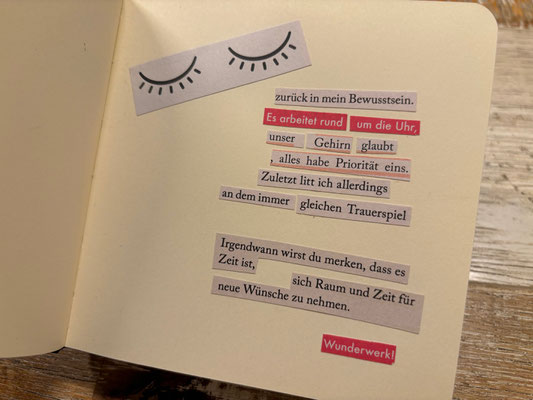 zurück in mein Bewusstsein.
Es arbeitet rund um die Uhr,
unser Gehirn glaubt
, alles habe Priorität eins.
Zuletzt litt ich allerdings
an dem immer gleichen Trauerspiel
Irgendwann wirst du merken, dass es
Zeit ist, sich Raum und Zeit für
neue Wünsche zu nehmen.
Wunderwerk!